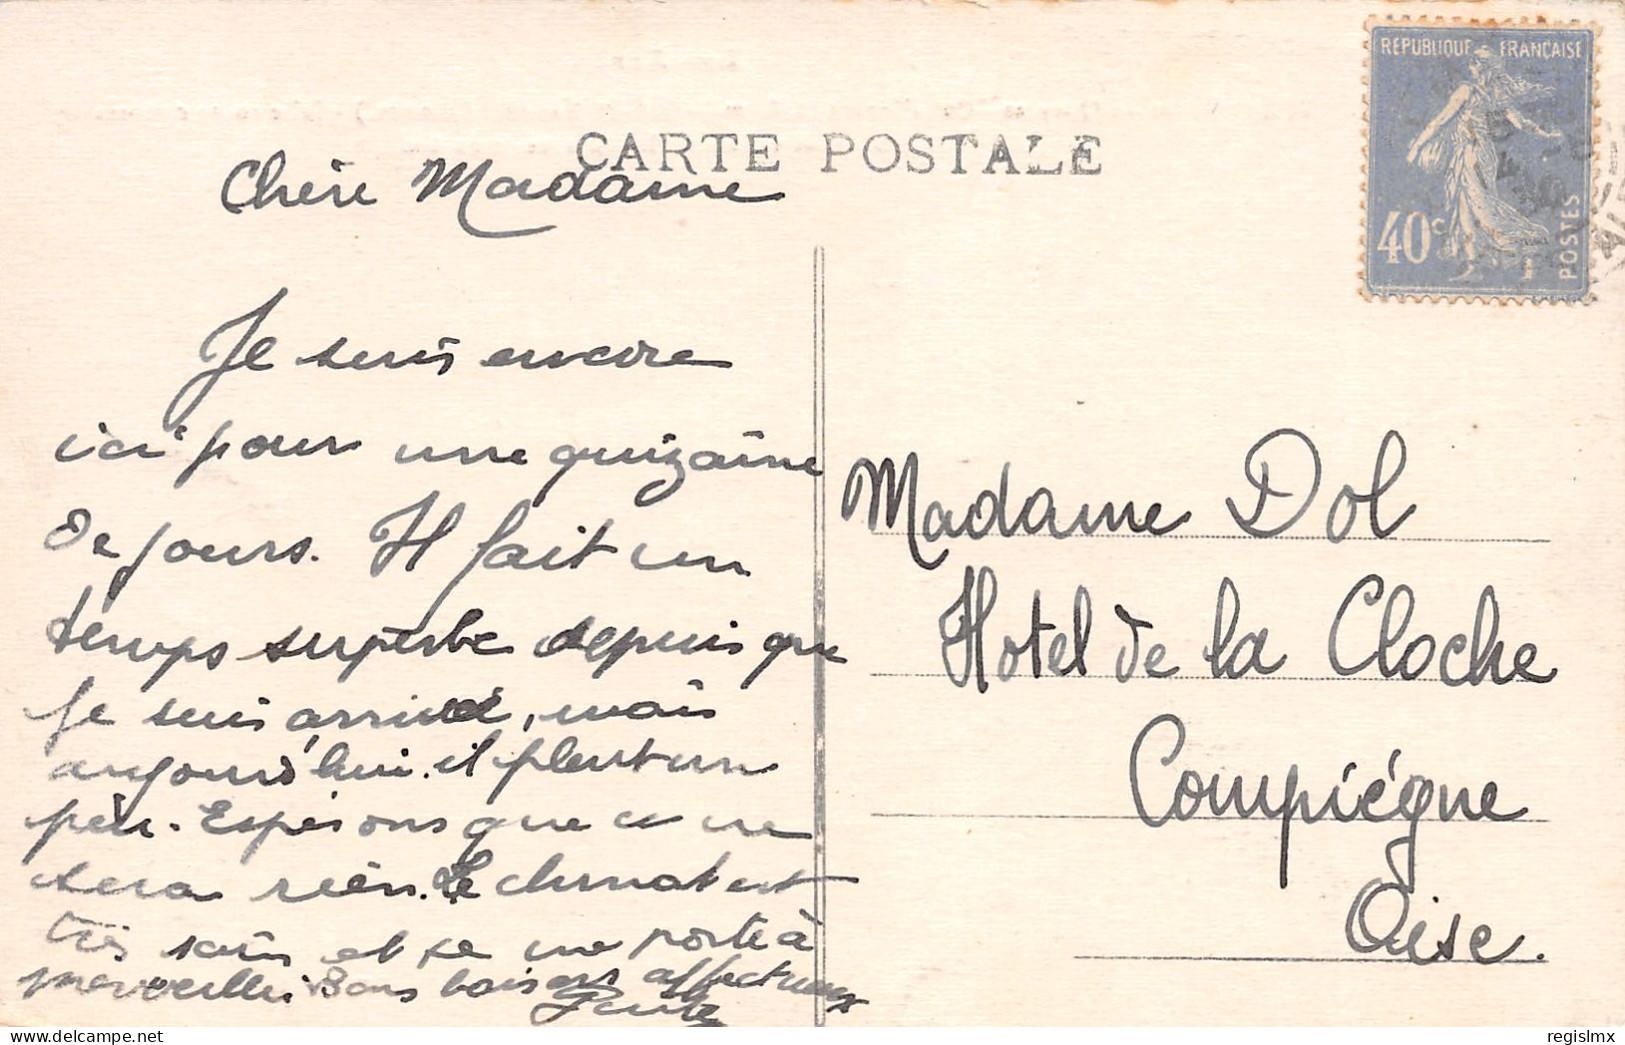 CARTE POSTALE
REPUBLIQUE FRANÇAISE
40c
POSTES
Chère Madame
Je suis encore
ici pour une quizaine
de jours. Il fait un
temps superbe depuis que
je suis arrivé, mais
aujourd'hui il pleut un
peu. Espérons que ce ne
sera rien. Le climat est
très sain et je me porte à
merveille. Bons baisers affectueux
Madame Dol
Hotel de la Cloche
Compiégne
Oise.
regislmx